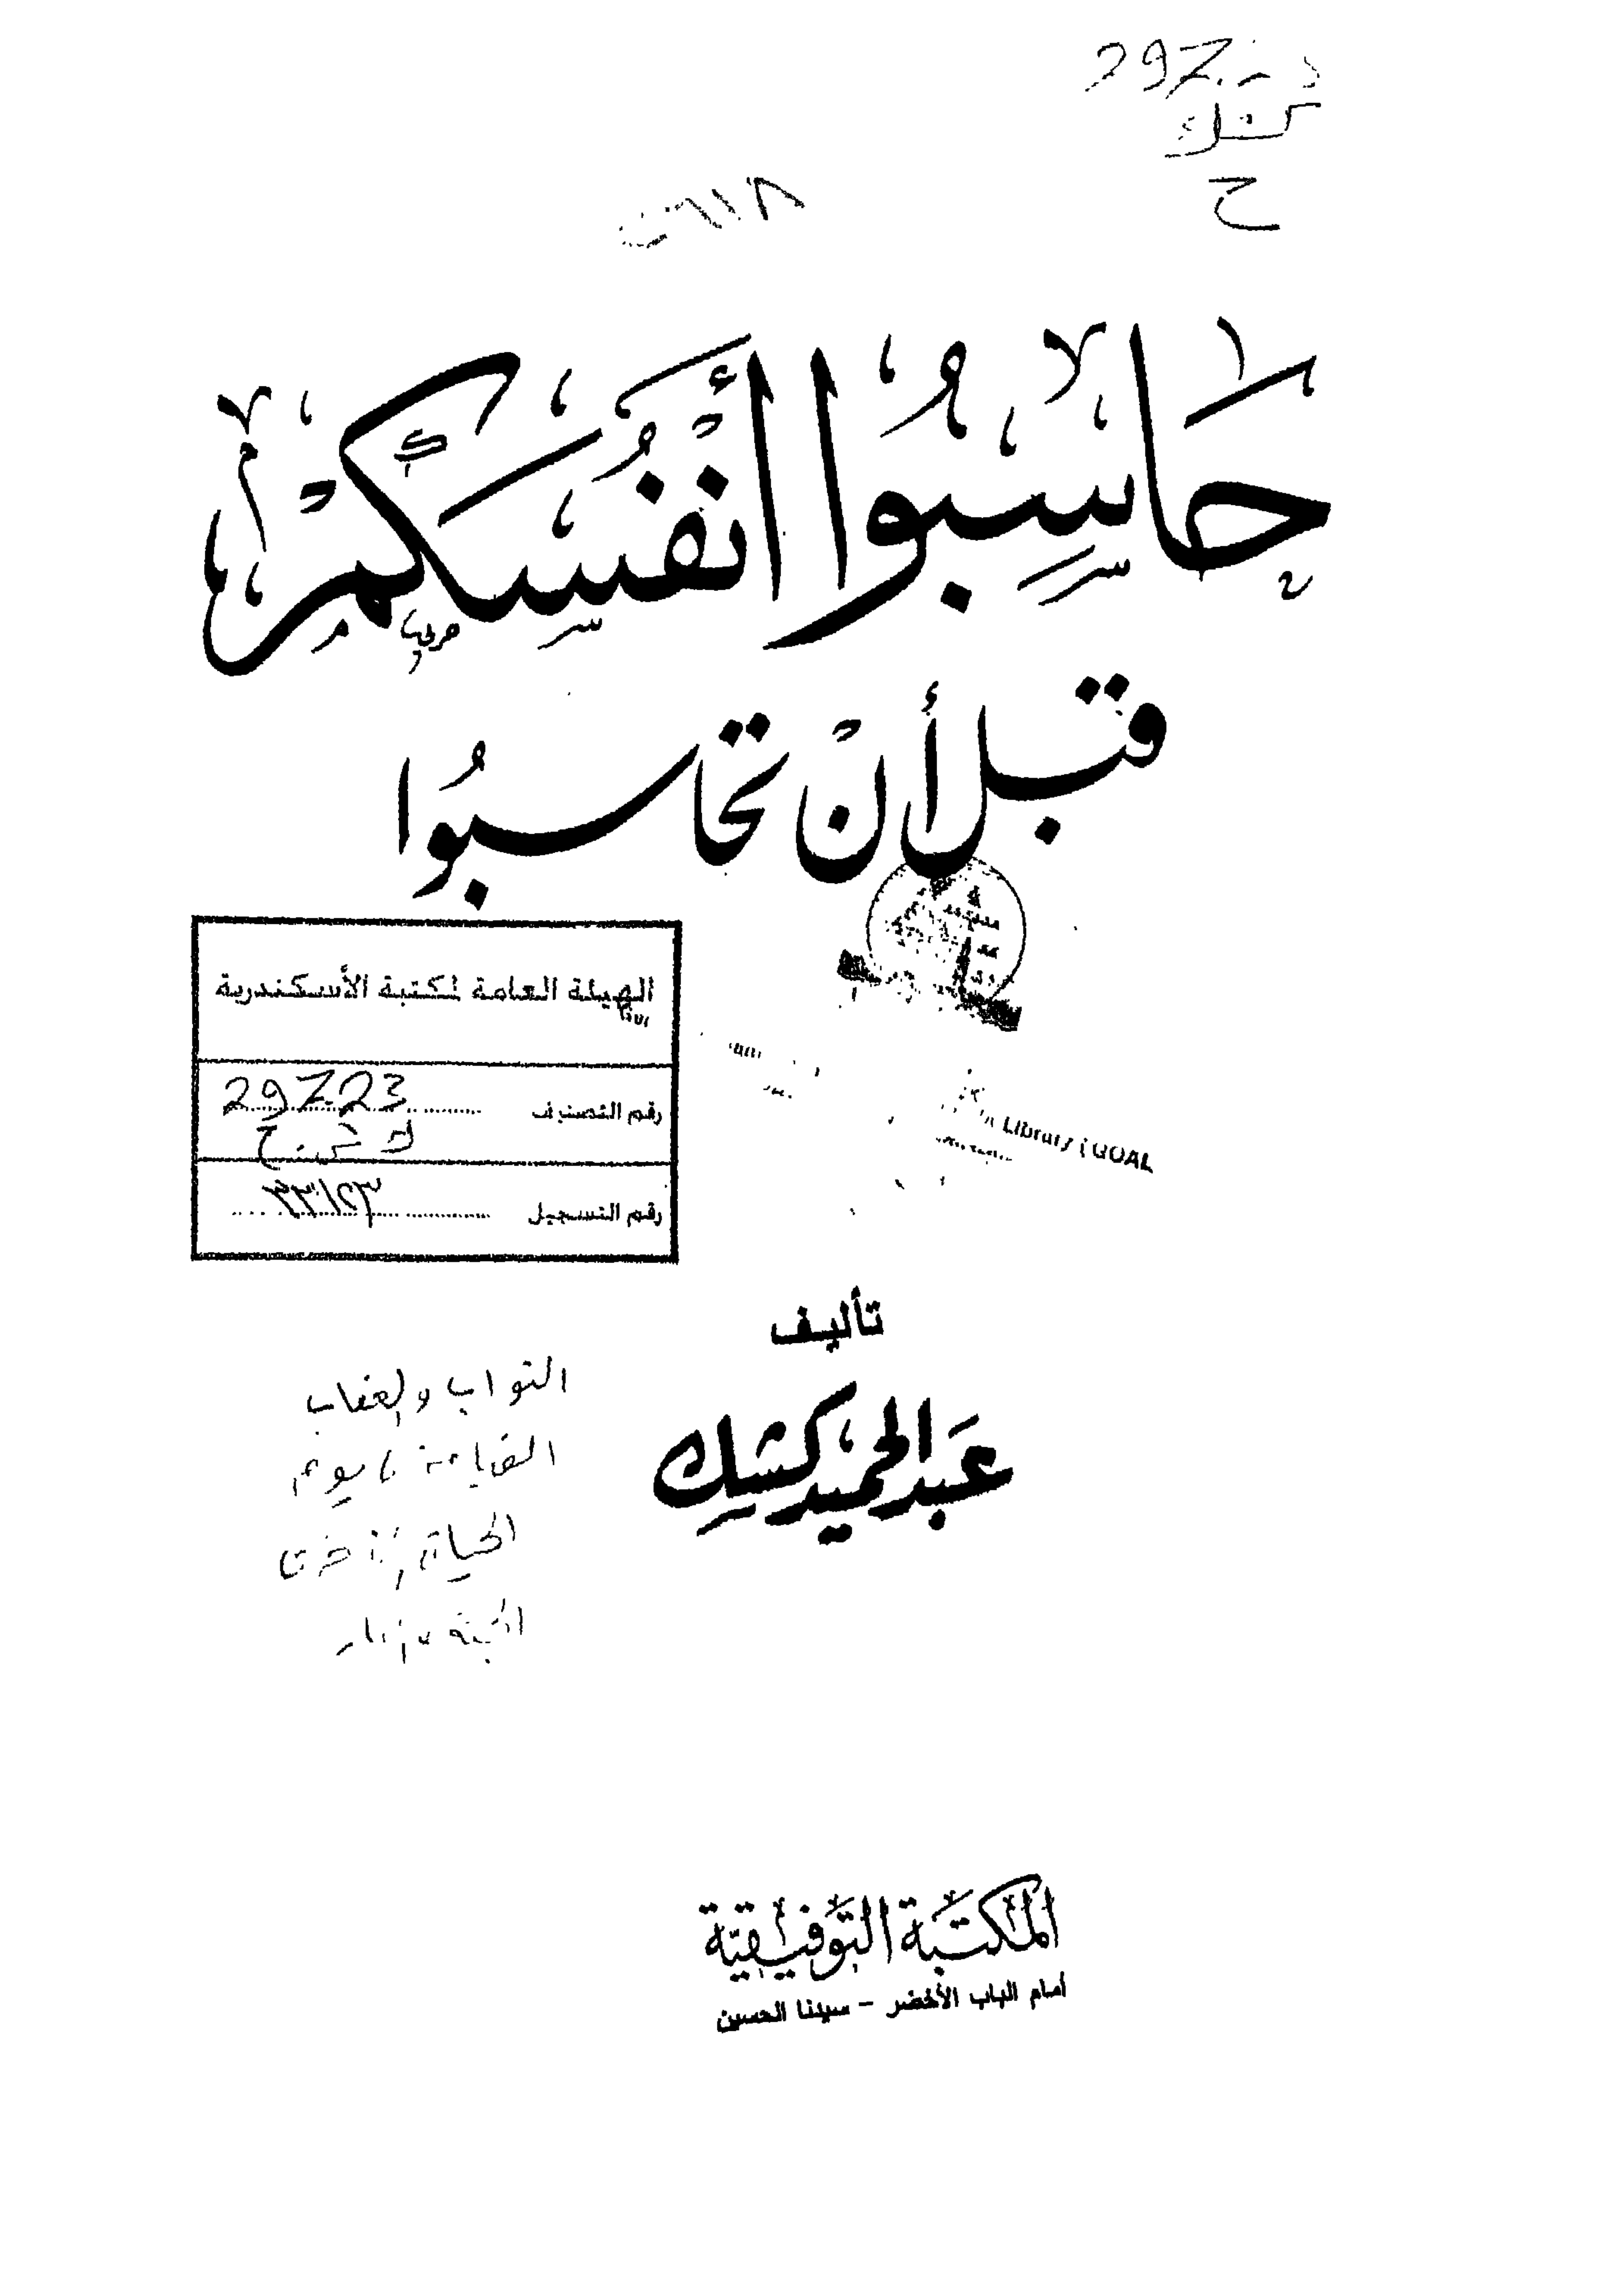 كشك
ح
حَاسِبُوا أَنْفُسَكُمْ
قبل أنْ تحاسبُوا
الهيئة العامة لكتبة الأسكندرية
رقم التصنيف 297.23
ك ش. ح
رقم التسجيل ٣٣١٥٣
Library (GOAL
تأليف
عَبدالحميد كشك
الثواب والعقاب
القيامة، يوم
الحياة الأخرى
الجنة والنار
المكتبة التوفيقية
أمام الباب الأخضر – سيدنا الحسين